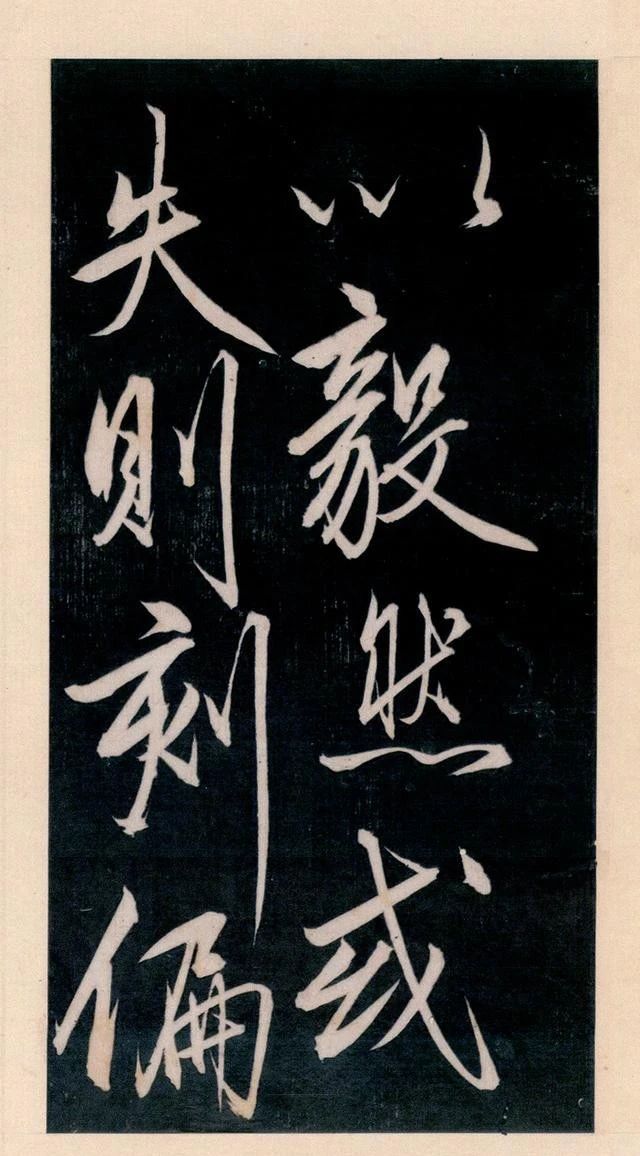 以毅然或
失則刻偏